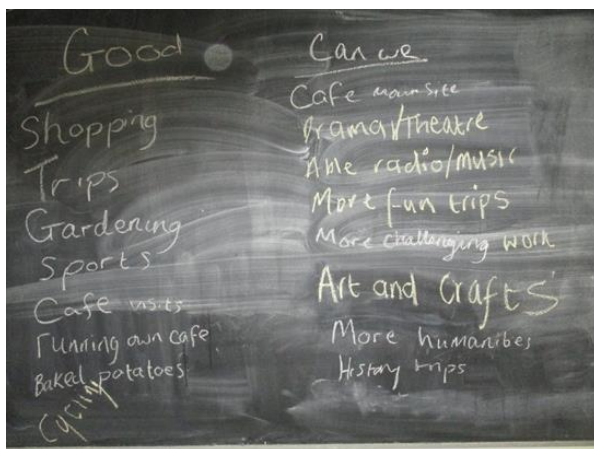 Good
Shopping
Trips
Gardening
Sports
Cafe visits
running own cafe
Baked potatoes
Cycling
Can we
Cafe main site
Drama/Theatre
Able radio/music
More fun trips
More challenging work
Art and Crafts
More humanities
History trips